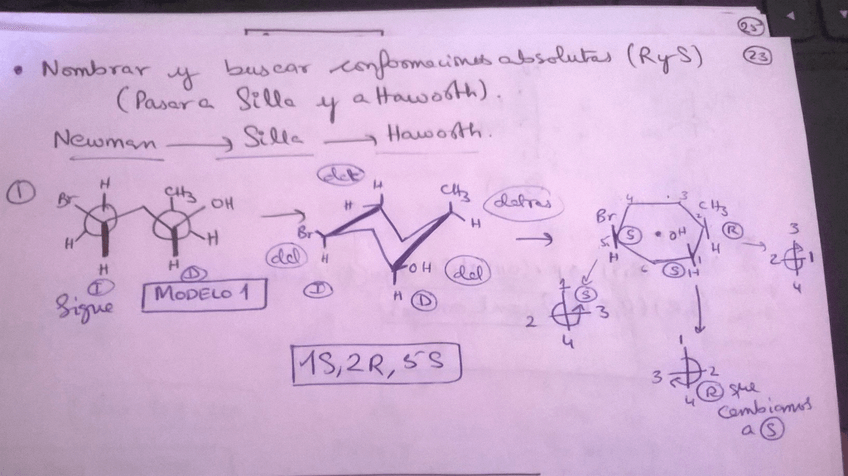 25
23
• Nombrar y buscar conformaciones absolutas (R y S)
(Pasar a Silla y a Haworth).
Newman → Silla → Haworth.
① Br H CH3 OH
H H H H
I D
Sigue MODELO 1
→ H H CH3 H detrás
Br H OH H
del del
I D
→ 4 3 CH3 2 R H
Br 5 S H OH
6 S 1 H
3 2 1 4
1 S 2 3 4
1 3 2 4 R que
cambiamos
a S
1S, 2R, 5S